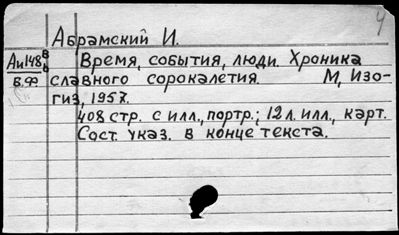 Абрамский И.
Аи148 В
Время, события, люди. Хроника
Б.Ф
славного сорокалетия. М, Изо-
гиз, 1957.
408 стр. с илл., портр.; 12 л. илл., карт.
Сост. указ. в конце текста.